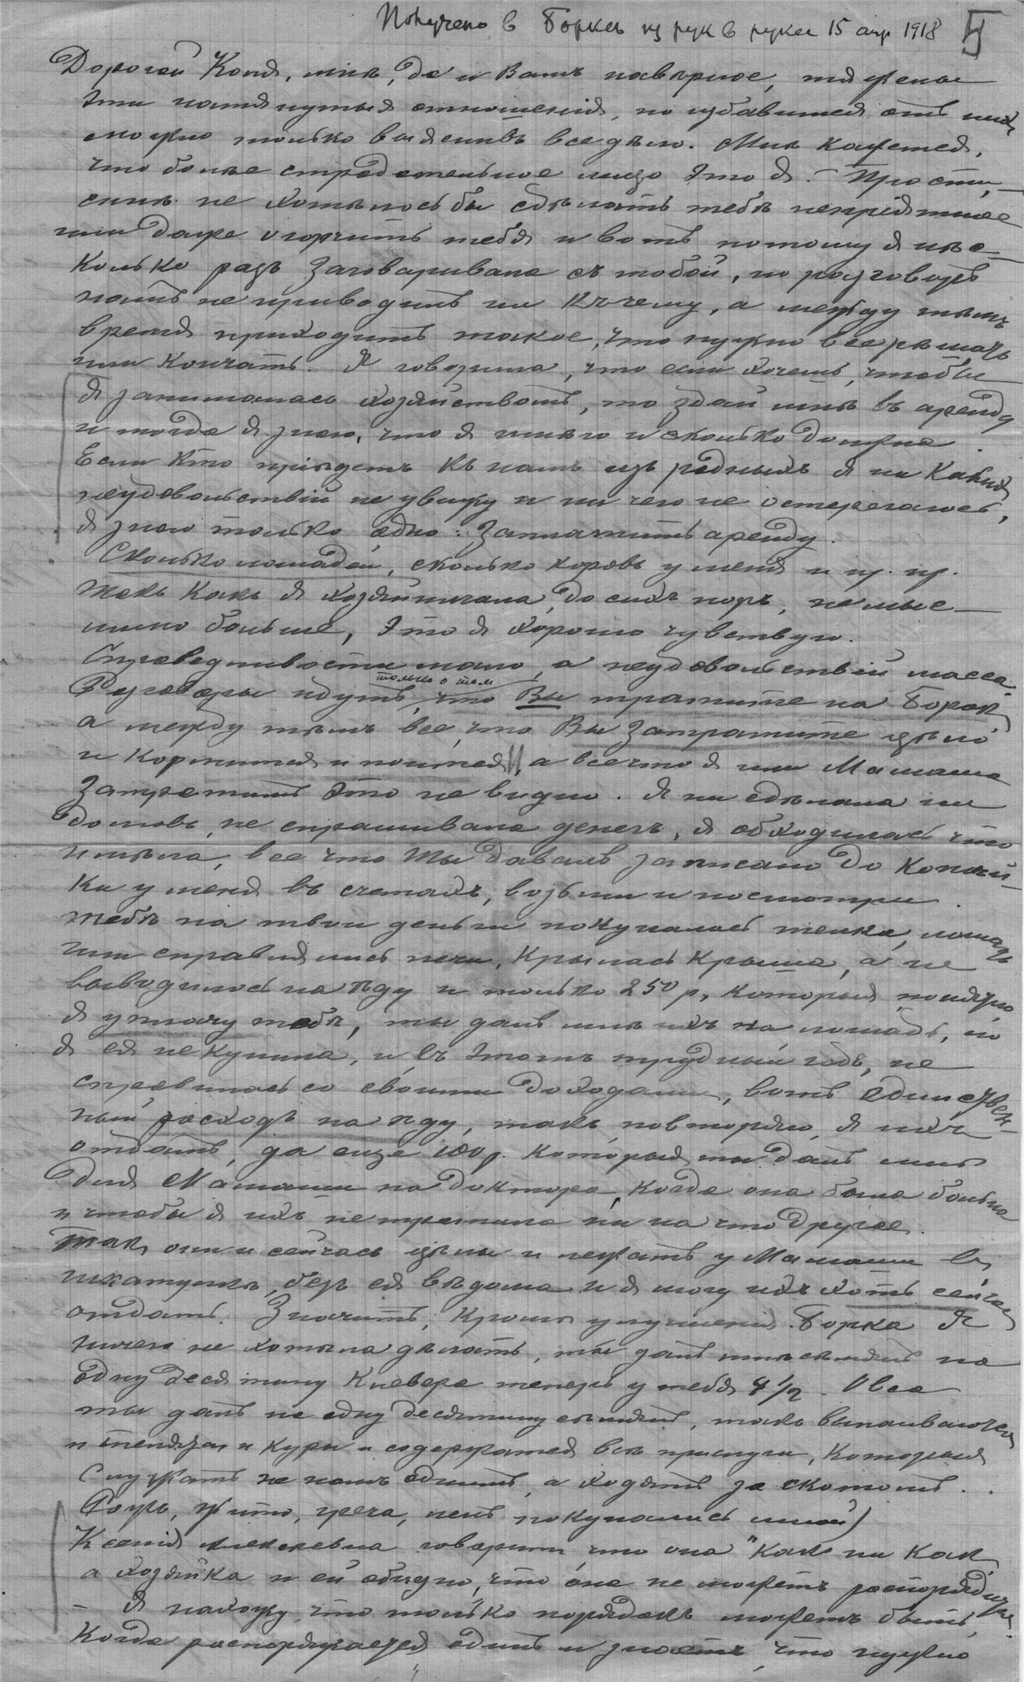 Получено в Борках из рук в руки 15 апр 1918
Дорогой Коля, мнѣ, да и Вамъ навѣрное, тяжелы
эти натянутыя отношенія, но избавиться отъ нихъ
можно только выяснивъ все дѣло. Мнѣ кажется,
что болѣе страдательное лицо это я. Прости,
мнѣ не хотѣлось бы сдѣлать тебѣ непріятное
или даже огорчить тебя и вотъ потому я нѣс-
колько разъ заговаривала съ тобой, но разговоръ
нашъ не приводитъ ни къ чему, а между тѣмъ
время приходитъ такое, что нужно все рѣшать
или кончать. Я говорила, что если хочешь, чтобы
я занималась хозяйствомъ, то здай мнѣ въ аренду
и тогда я знаю, что я имѣю и сколько должна.
Если кто пріѣдетъ къ намъ изъ родныхъ я ни какихъ
неудовольствій не увижу и ни чего не остерегаюсь,
я знаю только одно: заплатить аренду.
Сколько лошадей, сколько коровъ у меня и пр. пр.
Такъ какъ я хозяйничала до сихъ поръ, немыс-
лимо больше, это я хорошо чувствую.
Справедливости мало, а неудовольствій масса.
только о том
Разговоры идутъ, что Вы тратите на Борки,
а между тѣмъ все, что Вы затратите цѣло
и кормится и поится, а все что я или Мамаша
затратитъ это не видно. Я ни сдѣлала ни
долговъ, не спрашивала денегъ, я обходилась что
имѣла, все что ты давалъ записано до копѣй-
ки у меня въ счетахъ, возьми и посмотри.
Тебѣ на твои деньги покупалась телка, лошадь
или справлялись печи, крылась крыша, а не
выводилось на ѣду и только 250 р, которыя понятно,
я уплачу тебѣ, ты далъ мнѣ ихъ на лошадь, но
я ея не купила, и въ этотъ трудный годъ, не
справилась со своими доходами, вотъ единствен-
ный расходъ на ѣду, такъ, повторяю, я ихъ
отдамъ, да еще 100 р. которыя ты далъ мнѣ
для Мамаши на доктора, когда она была больна
и чтобы я ихъ не тратила ни на что другое.
Такъ они и сейчасъ цѣлы и лежатъ у Мамаши въ
шкатулкѣ, безъ ея вѣдома и я могу ихъ хоть сейчасъ
отдать. Значитъ, кромѣ улучшенія Борка я
ничего не хотѣла дѣлать, ты далъ мнѣ сѣмянъ на
одну десятину клевера теперь у тебя 4 1/2. Овса
ты далъ на одну десятину сѣмянъ, такъ выпаиваются
и телята и куры и содержатся вся прислуга, которыя
служатъ не намъ однимъ, а ходятъ за скотомъ.
жито, греча, покупались мной)
Ксенія Алексѣевна говоритъ, что она "какъ ни какъ,
а хозяйка и ей обидно, что она не можетъ распорядиться.
- Я нахожу, что только порядокъ можетъ быть,
когда распоряжается одинъ и знаетъ, что нужно